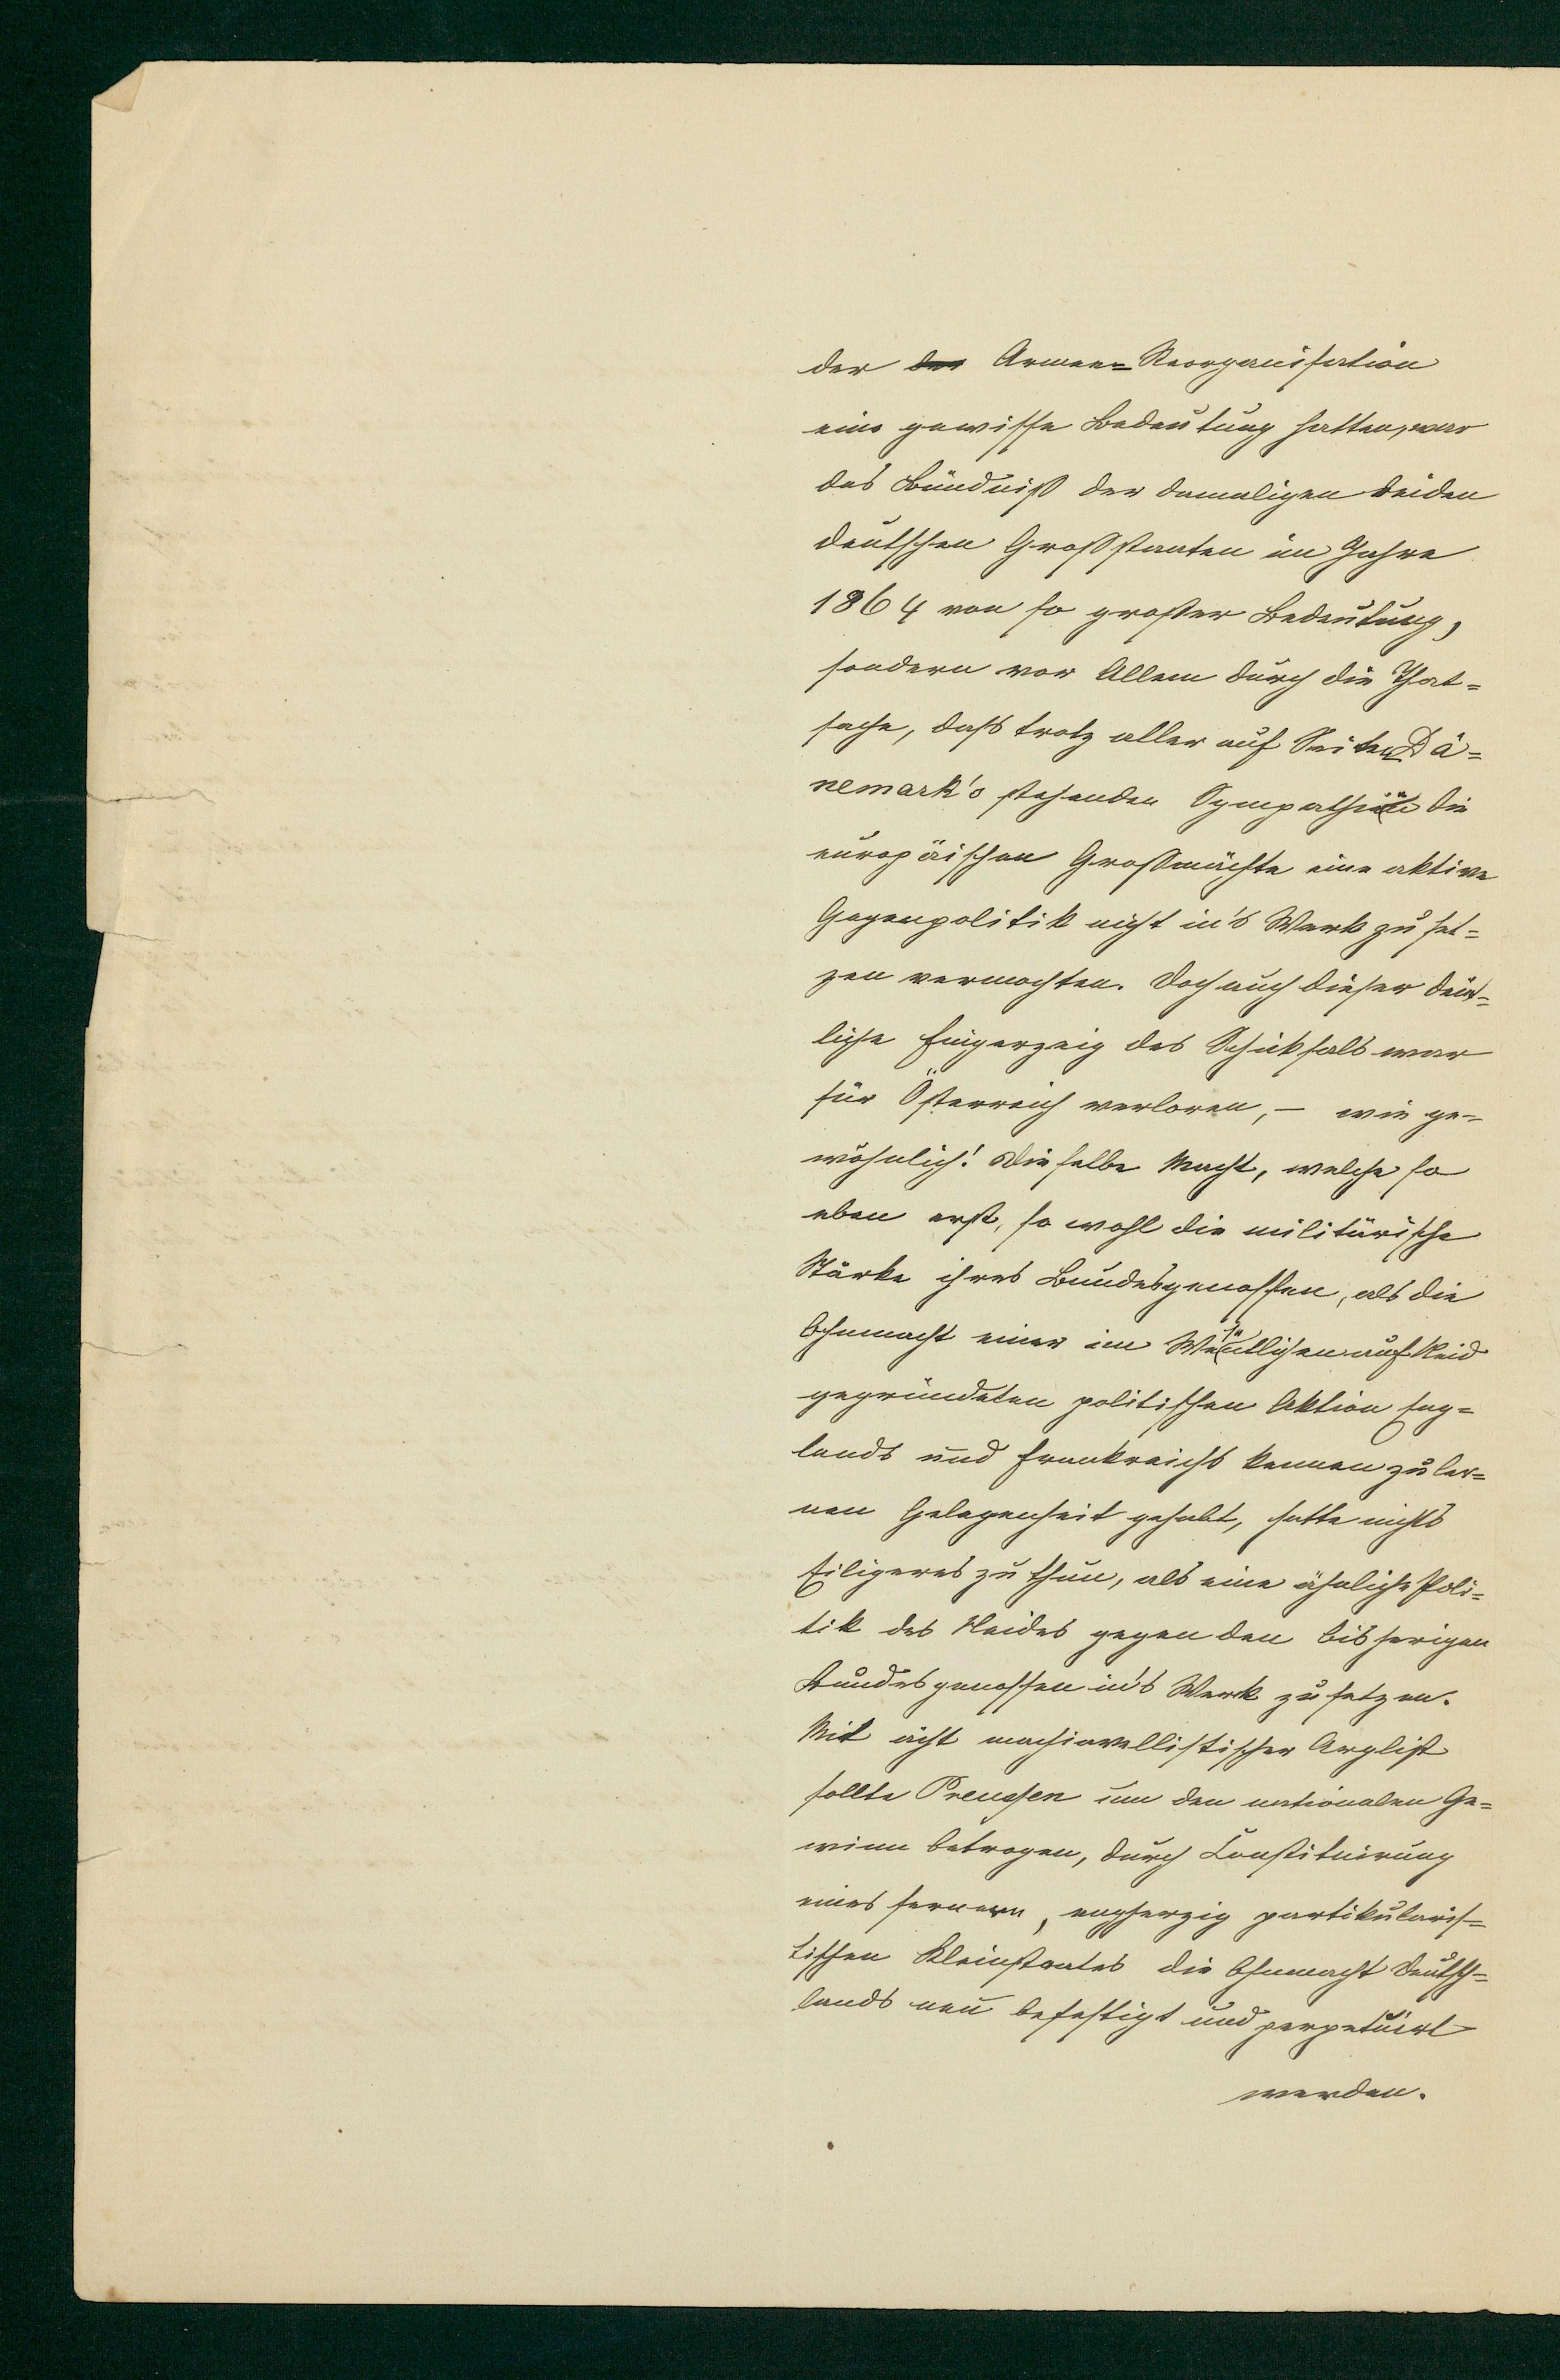 der der Armee=Reorganisation
eine gewisse Bedeutung hatten, war
das Bündniß der damaligen beiden
deutschen Großstaaten im Jahre
1864 von so großer Bedeutung,
sondern vor Allem durch die That=
sache, daß trotz aller auf Seiten Dä=
nemark's stehenden Sympathien die
europäischen Großmächte eine aktive
Gegenpolitik nicht in's Werk zu set=
zen vermochten. Doch auch dieser deut=
liche Fingerzeig des Schicksals war
für Österreich verloren, – wie ge=
wöhnlich! Dieselbe Macht, welche so
eben erst, so wohl die militärische
Stärke ihres Bundesgenossen, als die
Ohnmacht einer im Wesentlichen auf Neid
gegründeten politischen Aktion Eng=
lands und Frankreichs kennen zu ler=
nen Gelegenheit gehabt, hatte nichts
Eiligeres zu thun, als eine ähnliche Poli=
tik des Neides gegen den bisherigen
Bundesgenossen in's Werk zu setzen.
Mit ächt machiavellistischer Arglist
sollte Preussen um den nationalen Ge=
winn betrogen, durch Constituirung
eines ferneren, engherzig partikularis=
tischen Kleinstaates die Ohnmacht Deutsch=
lands neu befestigt und perpetuirt
werden.